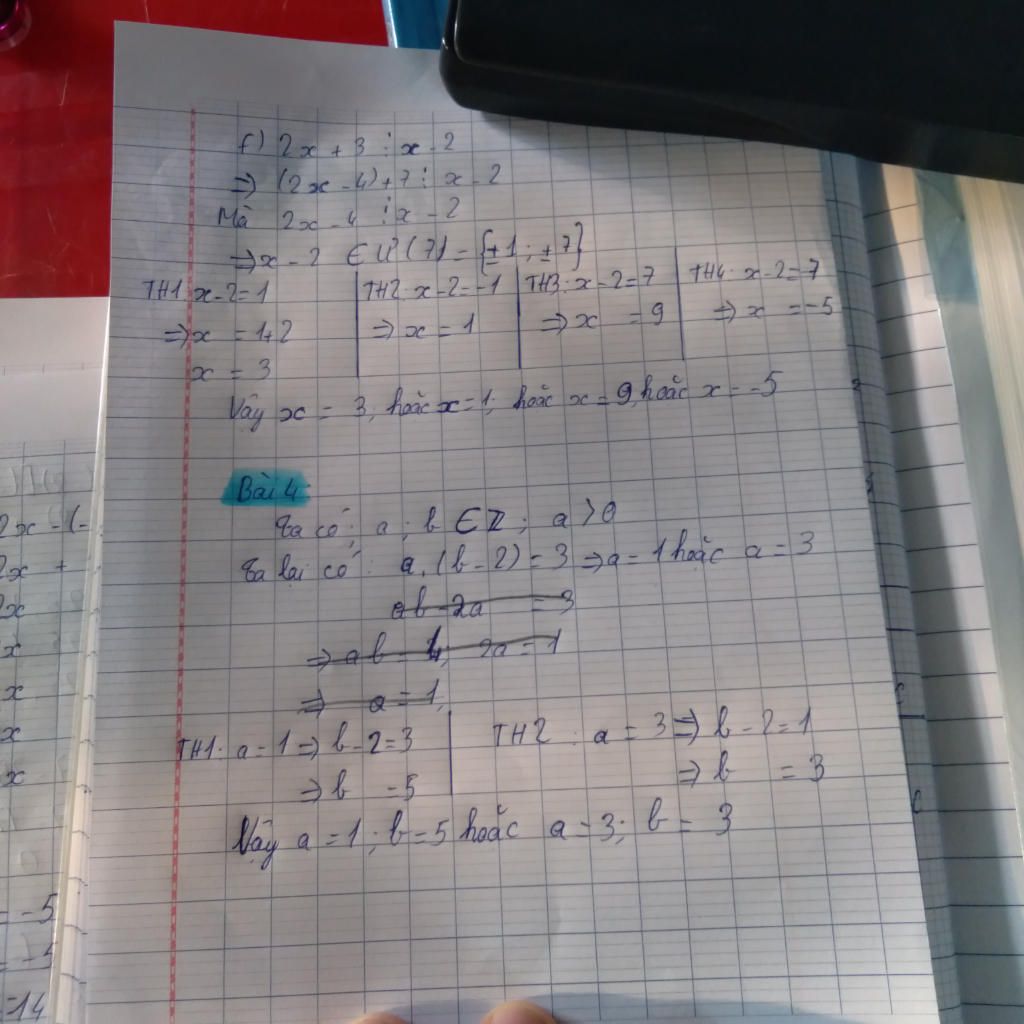 f) 2x + 3 ⋮ x - 2
⇒ (2x - 4) + 7 ⋮ x - 2
Mà 2x - 4 ⋮ x - 2
⇒ x - 2 ∈ Ư(7) = {±1; ±7}
TH1: x - 2 = 1
⇒ x = 1+2
x = 3
TH2: x - 2 = -1
⇒ x = 1
TH3: x - 2 = 7
⇒ x = 9
TH4: x - 2 = 7
⇒ x = -5
Vậy x = 3, hoặc x = 1; hoặc x = 9, hoặc x = -5
Bài 4
Ta có: a; b ∈ Z; a > 0
Ta lại có: a.(b - 2) = 3 ⇒ a = 1 hoặc a = 3
ab - 2a = 3
⇒ ab = 4; 2a = 1
⇒ a = 1,
TH1: a = 1 ⇒ b - 2 = 3
⇒ b = 5
TH2: a = 3 ⇒ b - 2 = 1
⇒ b = 3
Vậy a = 1; b = 5 hoặc a = 3; b = 3
2x - (-
2x +
2x
x
x
x
x
= -5
= -5
= 14